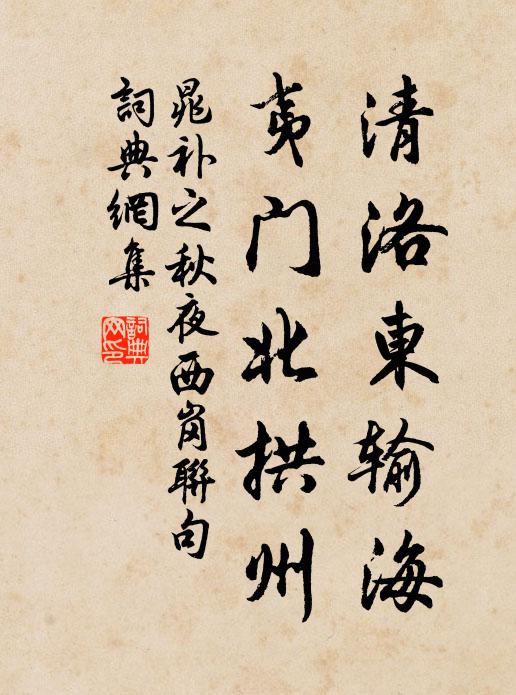 清洛東输海
夷门北拱州
晁补之秋夜西岗聯句
詞典網集
詞典
网印